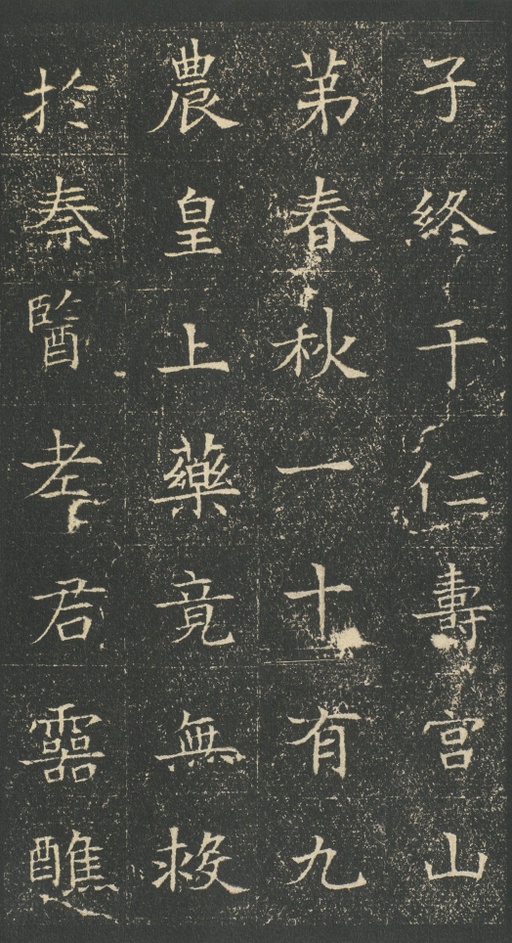 子終于仁壽宮山
苐春秋一十有九
農皇上藥竟無救
於秦醫老君靈醮